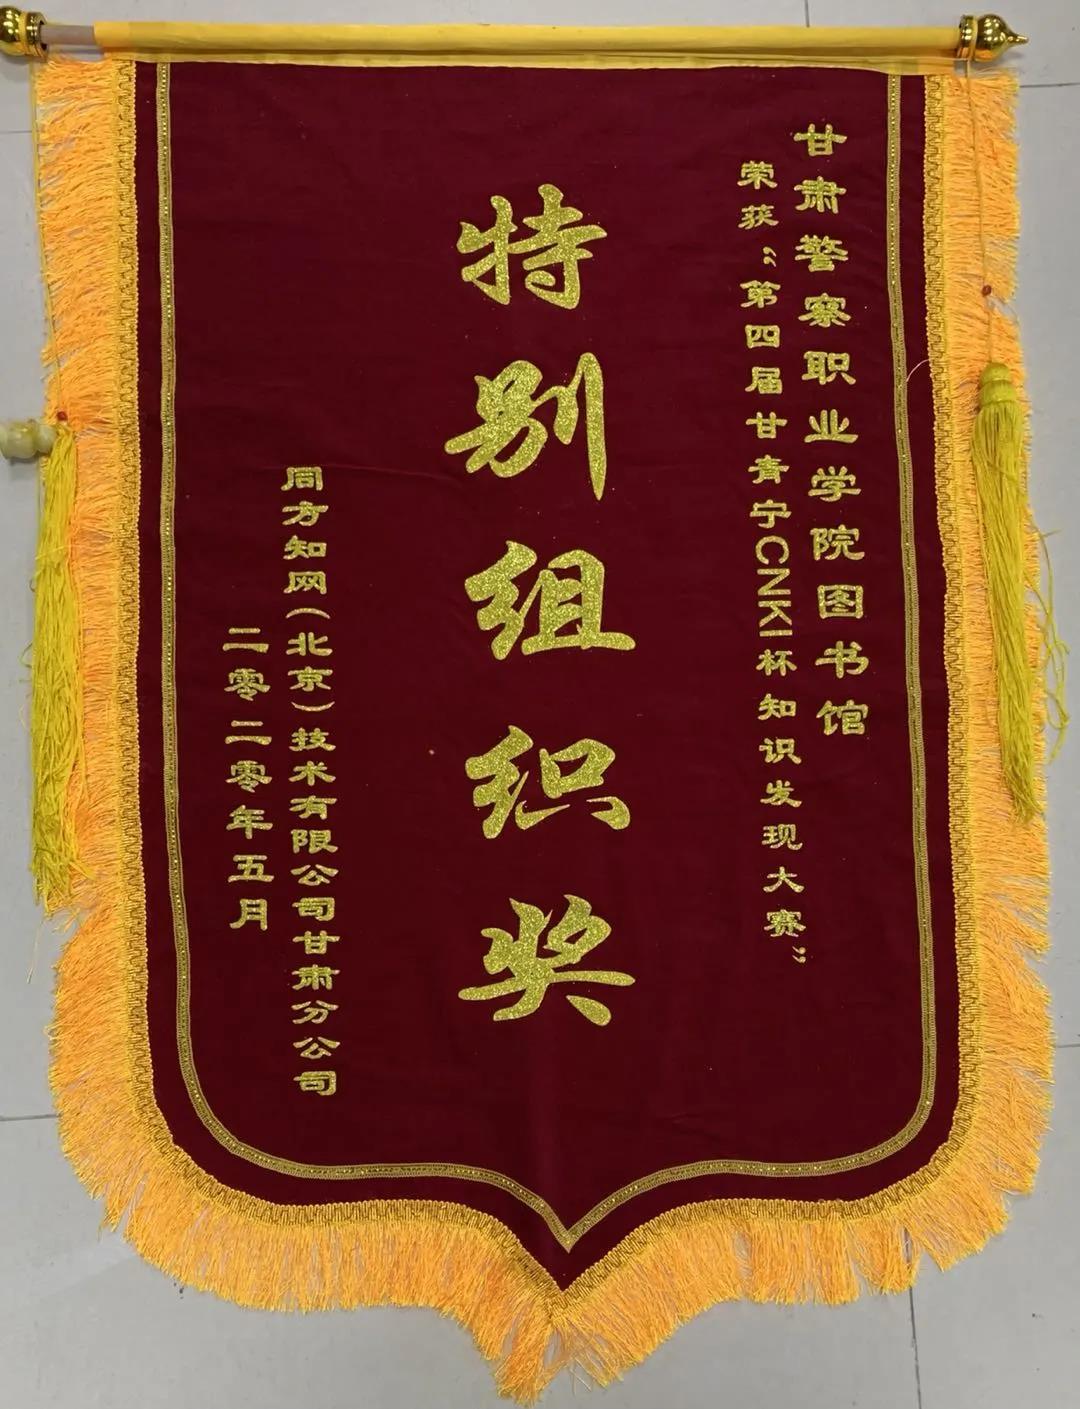 甘肃警察职业学院图书馆
荣获“第四届甘青宁CNKI杯知识发现大赛”
特别组织奖
同方知网(北京)技术有限公司甘肃分公司
二零二零年五月